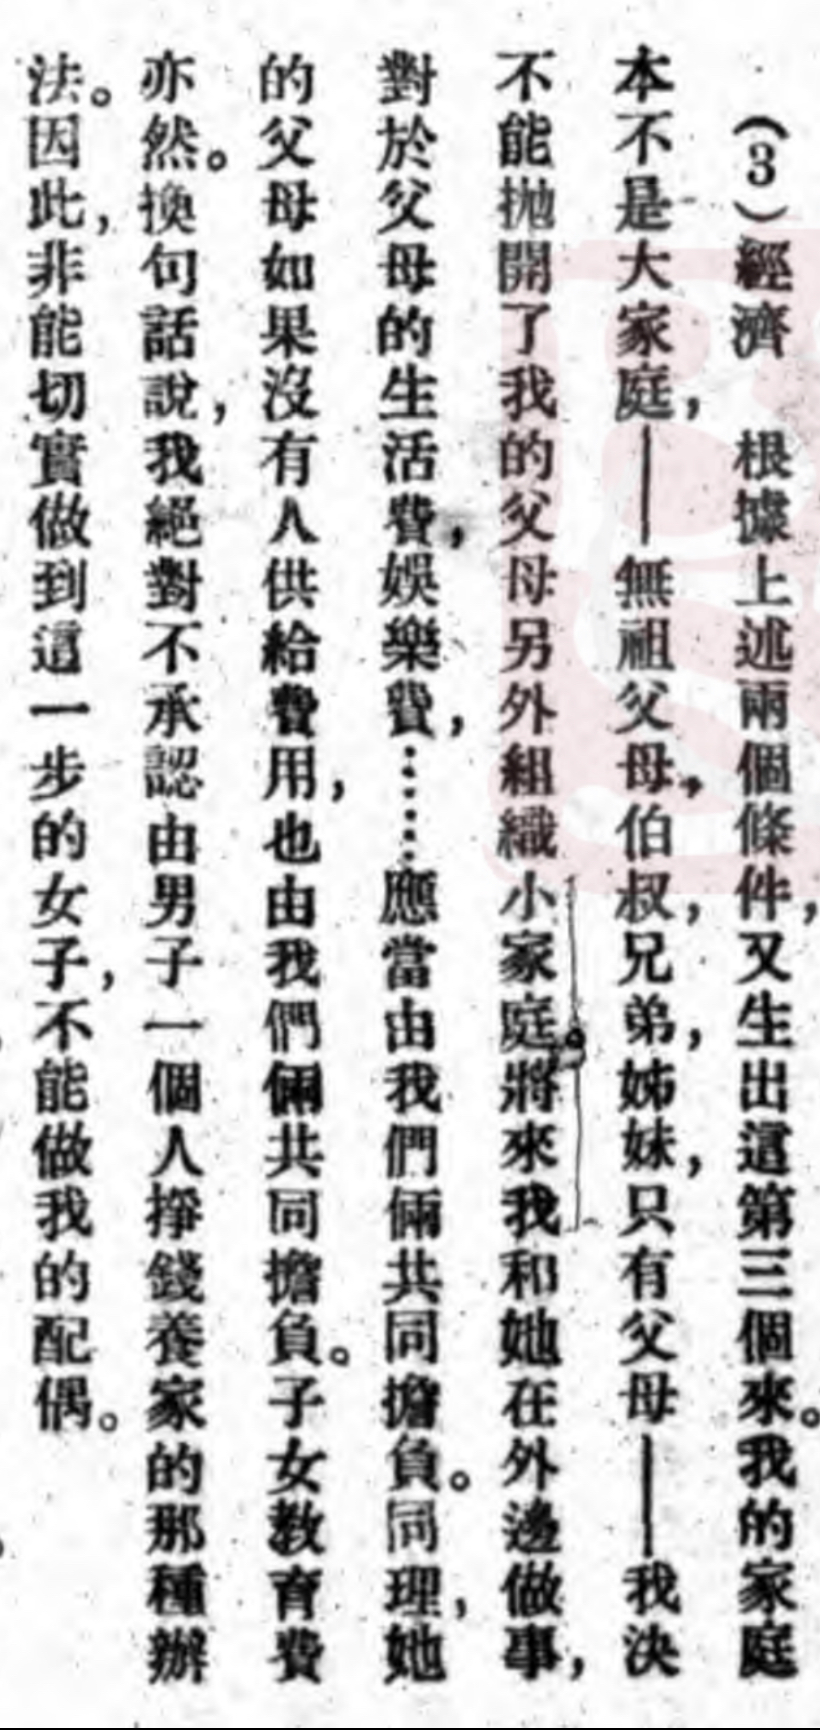 （3）經濟　根據上述兩個條件，又生出這第三個來。我的家庭
本不是大家庭，——無祖父母，伯叔，兄弟，姊妹，只有父母——我決
不能拋開了我的父母另外組織小家庭將來我和她在外邊做事，
對於父母的生活費，娛樂費，……應當由我們倆共同擔負。同理，她
的父母如果沒有人供給費用，也由我們倆共同擔負。子女教育費
亦然。換句話說，我絕對不承認由男子一個人掙錢養家的那種辦
法。因此，非能切實做到這一步的女子，不能做我的配偶。